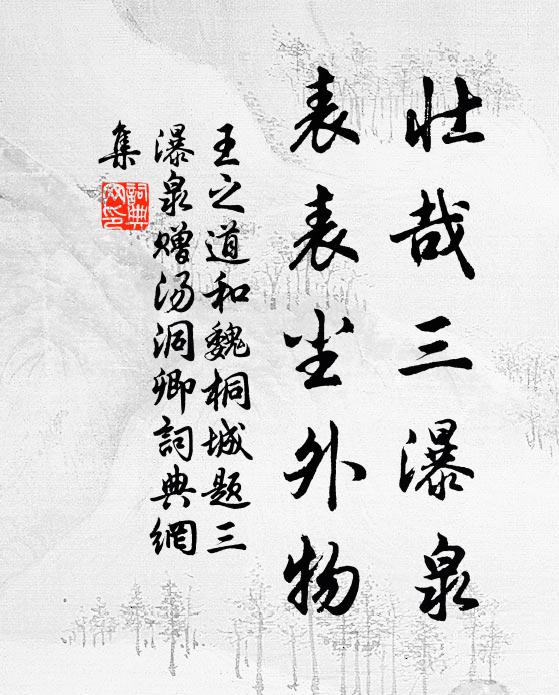 壮哉三瀑泉
表表尘外物
王之道和魏桐城题三
瀑泉赠汤洞卿詞典網
集
詞典網印